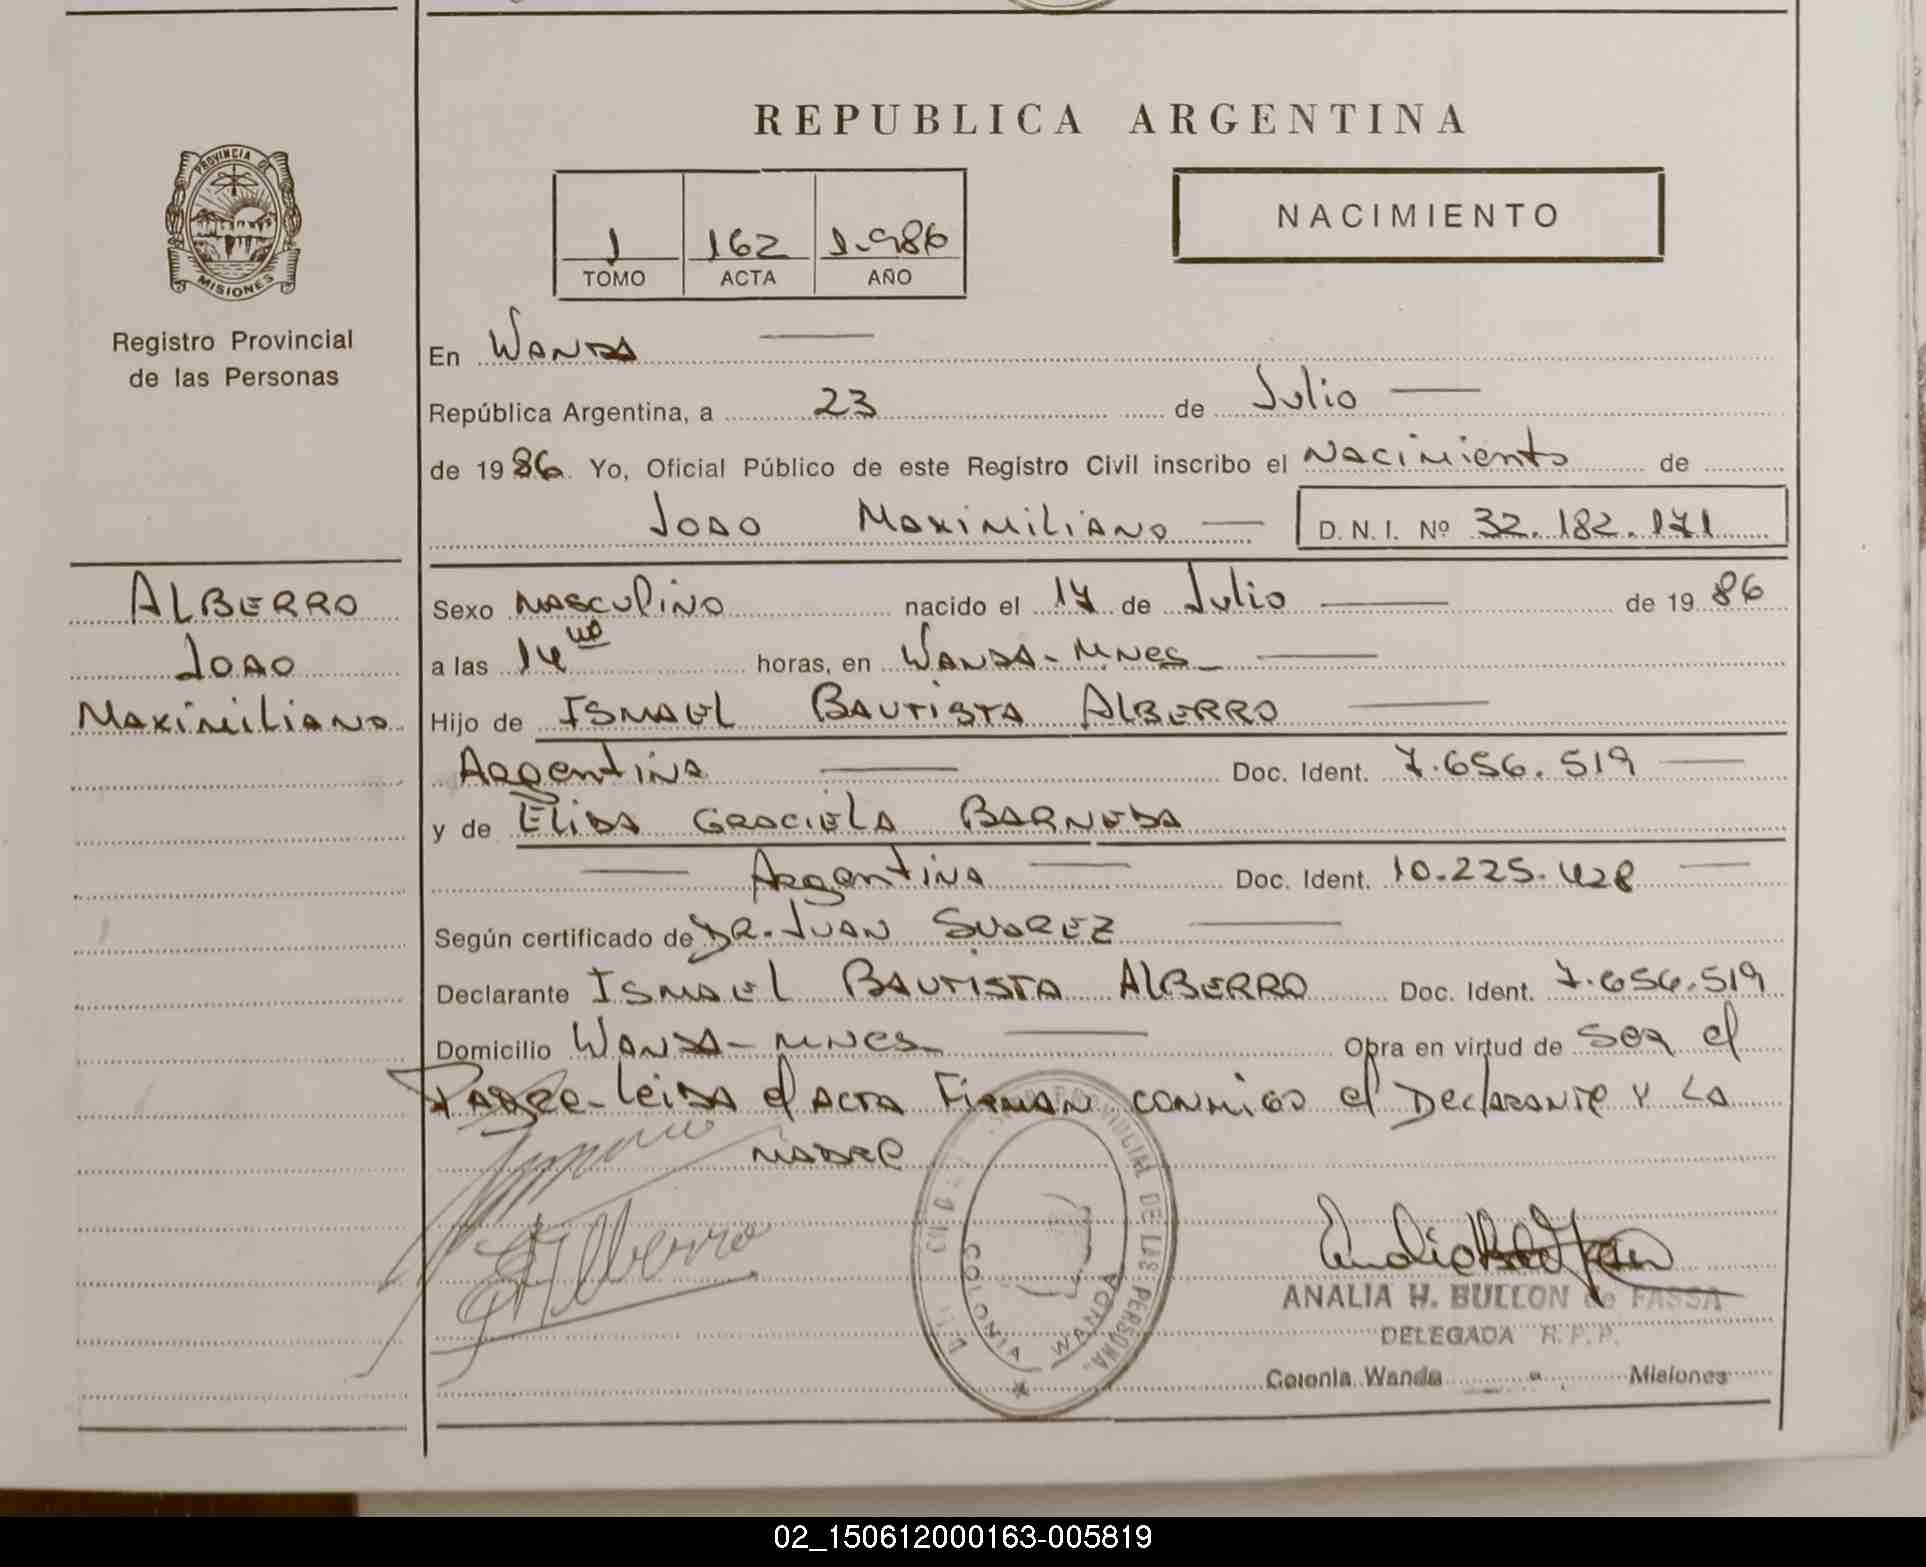 REPUBLICA ARGENTINA
PROVINCIA DE
MISIONES
Registro Provincial
de las Personas
1 162 1.986
TOMO ACTA AÑO
NACIMIENTO
En WANDA
República Argentina, a 23 de Julio
de 1986. Yo, Oficial Público de este Registro Civil inscribo el Nacimiento de
JOAO MAXIMILIANO D. N. I. Nº 32.182.171
ALBERRO
JOAO
MAXIMILIANO
Sexo MASCULINO nacido el 17 de Julio de 1986
a las 14 horas, en WANDA-MNES
Hijo de ISMAEL BAUTISTA ALBERRO
Argentina Doc. Ident. 7.656.519
y de ELIDA GRACIELA BARNEDA
Argentina Doc. Ident. 10.225.428
Según certificado de DR. JUAN SUAREZ
Declarante ISMAEL BAUTISTA ALBERRO Doc. Ident. 7.656.519
Domicilio WANDA-MNES Obra en virtud de ser el
PADRE-Leida el ACTA Firman conmigo el Declarante y LA
MADRE
DE LAS PERSONAS
COLONIA WANDA
Alberro
ANALIA H. BULLON de FASSA
DELEGADA R.P.P.
Colonia Wanda Misiones
02_150612000163-005819